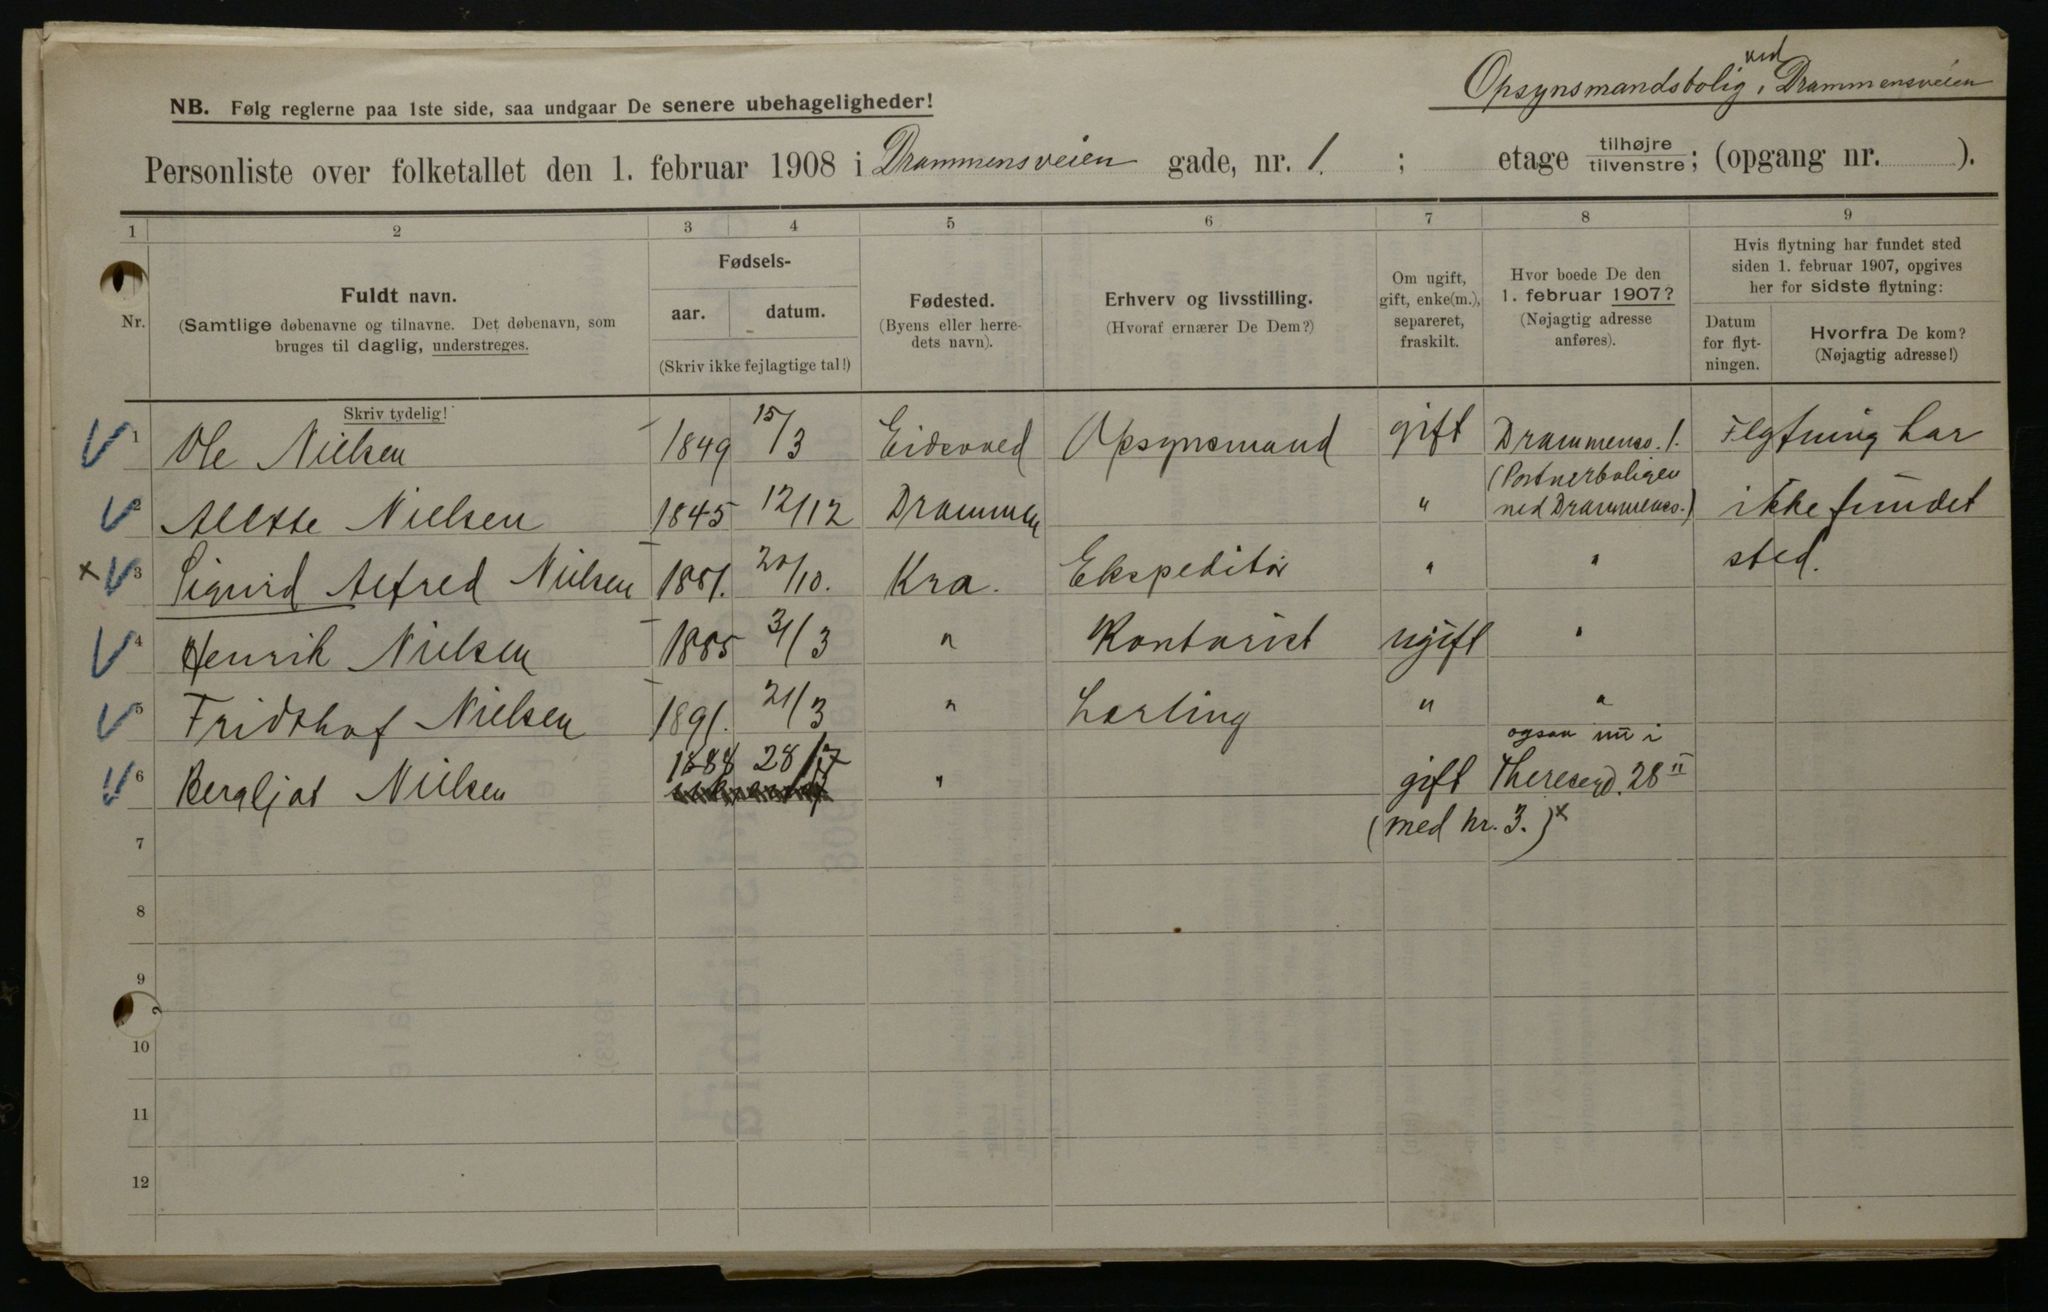 Opsynsmandsbolig ved Drammensveien
NB. Følg reglerne paa 1ste side, saa undgaar De senere ubehageligheder!
Personliste over folketallet den 1. februar 1908 i Drammensveien gade, nr. 1. ; etage tilhøjre tilvenstre; (opgang nr. ).
1 2 3 4 5 6 7 8 9
Nr.
Fuldt navn.
(Samtlige døbenavne og tilnavne. Det døbenavn, som
bruges til daglig, understreges.
Skriv tydelig!
Fødsels-
aar. datum.
(Skriv ikke fejlagtige tal!)
Fødested.
(Byens eller herre-
dets navn).
Erhverv og livsstilling.
(Hvoraf ernærer De Dem?)
Om ugift,
gift, enke(m.),
separeret,
fraskilt.
Hvor boede De den
1. februar 1907?
(Nøjagtig adresse
anføres).
Hvis flytning har fundet sted
siden 1. februar 1907, opgives
her for sidste flytning:
Datum
for flyt-
ningen.
Hvorfra De kom?
(Nøjagtig adresse!)
1 Ole Nielsen 1849 15/3 Eidsvold Opsynsmand gift Drammensv. 1. Flytning har
(Portnerboligen
2 Nielsen 1845 12/12 Drammen " ved Drammensv.) ikke fundet
x 3 Sigurd Alfred Nielsen 1881. 20/10. Kra. Ekspeditør " " sted.
4 Henrik Nielsen 1885 /3 " Kontorist ugift "
5 Fridthof Nielsen 1891. 21/3 " Lærling " "
ogsaa nu i
6 Bergljot Nielsen 1888 28/7 " gift Theresegd. 28 II
(med nr. 3.) x
7
8
9
10
11
12